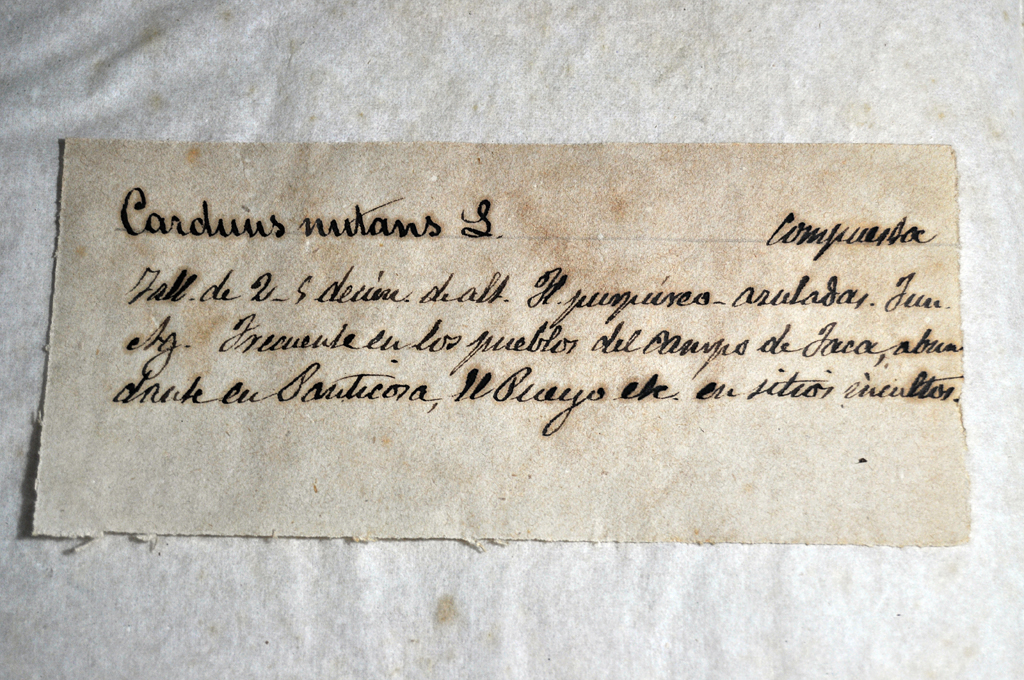 Carduus nutans L. Compuesta
Tall. de 2-5 decim. de alt. Fl. purpúreo-azuladas. Jun.
Ag. Frecuente en los pueblos del campo de Jaca, abun
dante en Panticosa, El Pueyo etc. en sitios incultos.